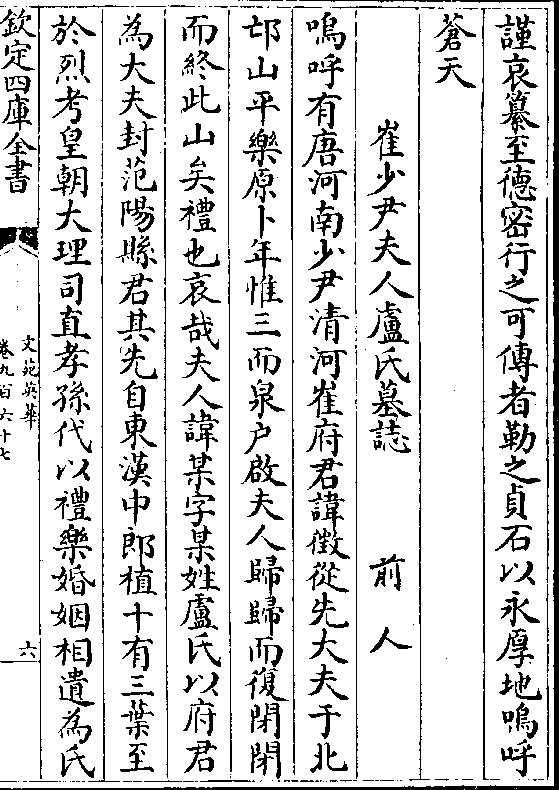 謹哀纂至德密行之可傳者勒之貞石以永厚地嗚呼
蒼天
崔少尹夫人盧氏墓誌　前人
嗚呼有唐河南少尹清河崔府君諱徴從先大夫于北
邙山平樂原卜年惟三而泉户啟夫人歸歸而復閉閉
而終此山矣禮也哀哉夫人諱某字某姓盧氏以府君
為大夫封范陽縣君其先自東漢中郎植十有三葉至
於烈考皇朝大理司直孝孫代以禮樂婚姻相遺為氏
欽定四庫全書
文苑英華
卷九百六十七
六